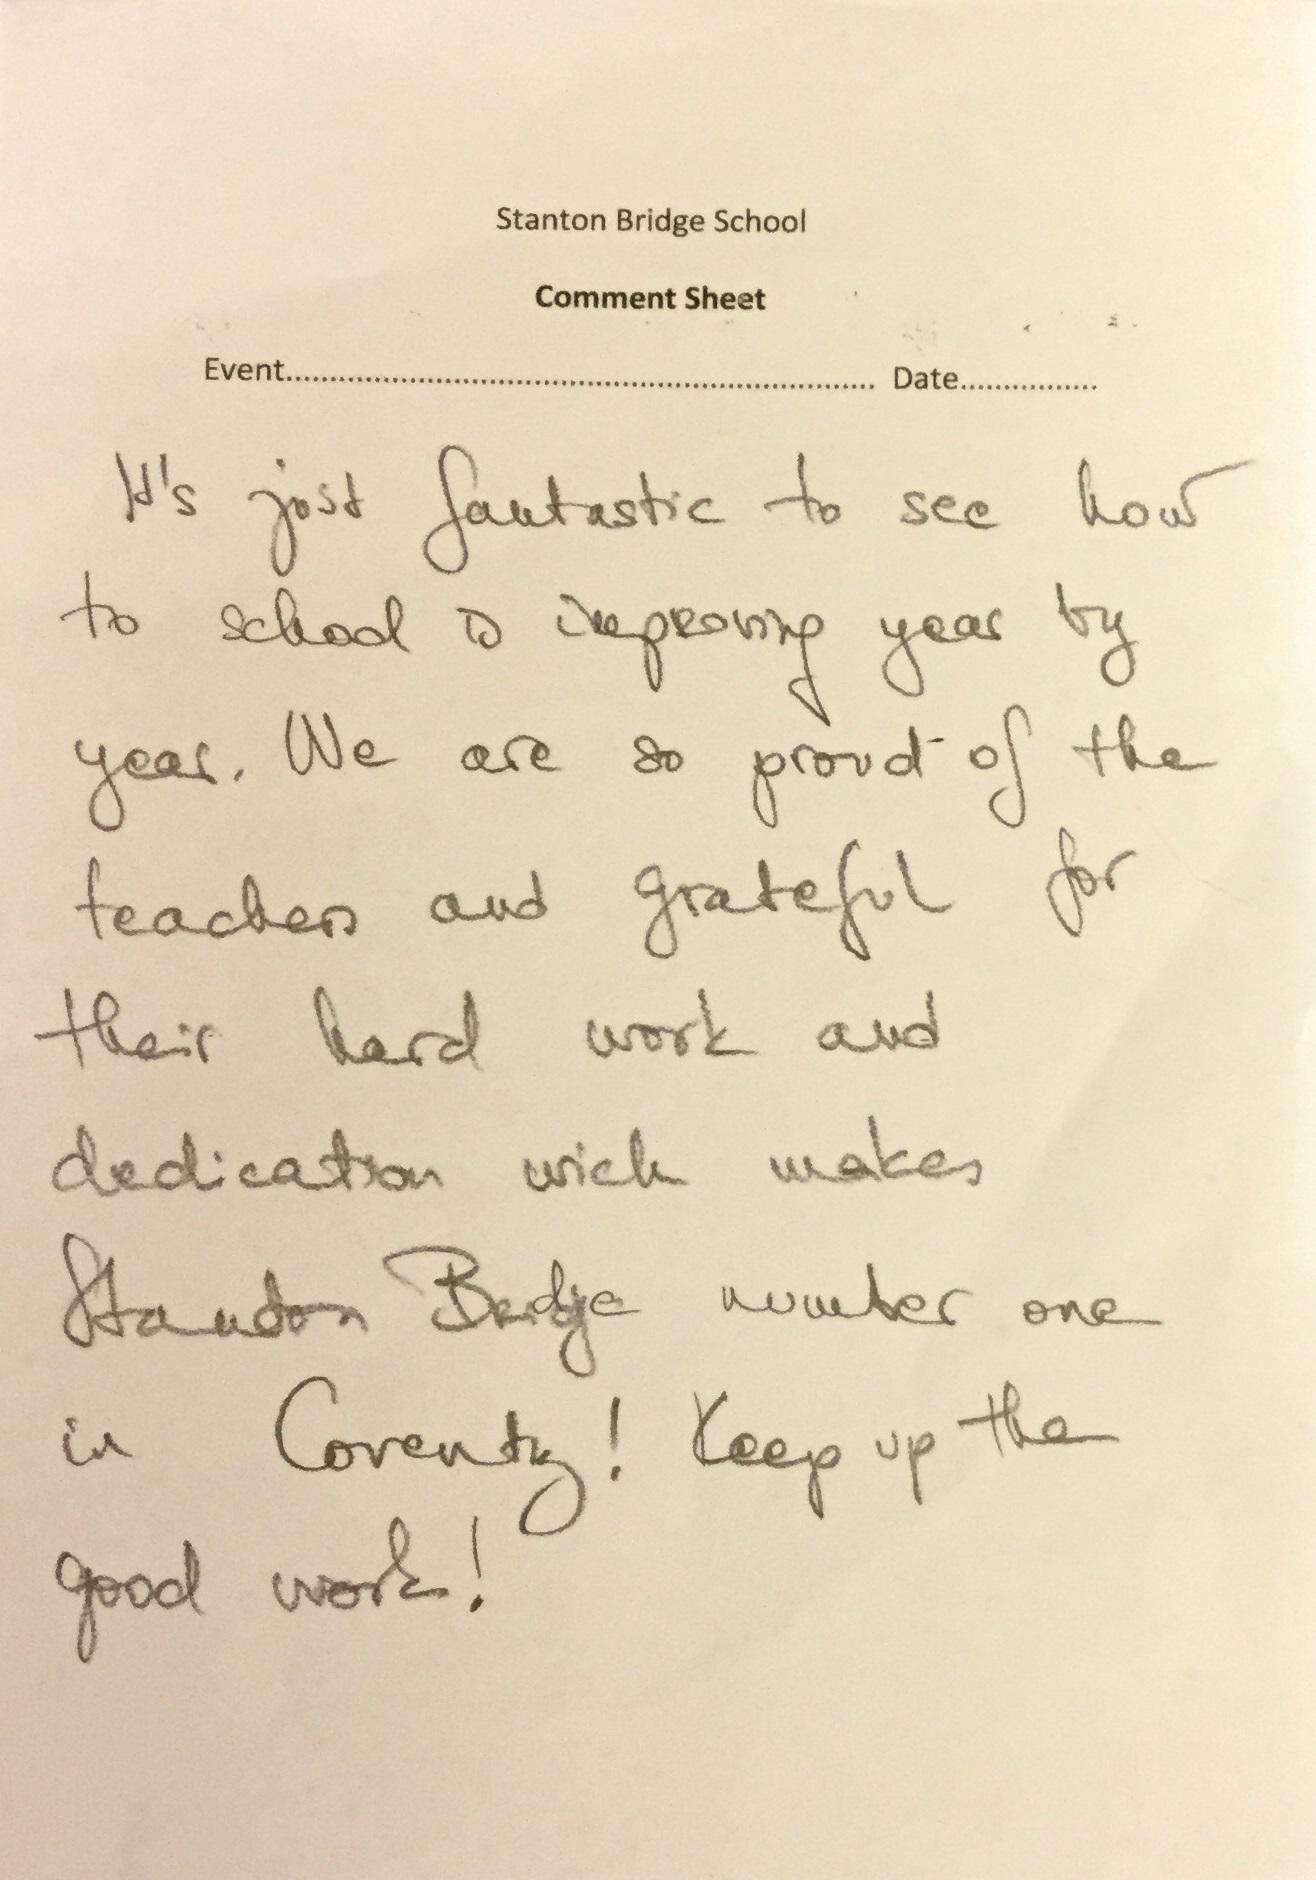 Stanton Bridge School
Comment Sheet
Event..................................................................... Date................
It's just fantastic to see how
to school is improving year by
year. We are so proud of the
teachers and grateful for
their hard work and
dedication wich makes
Standon Bridge number one
in Coventry! Keep up the
good work!